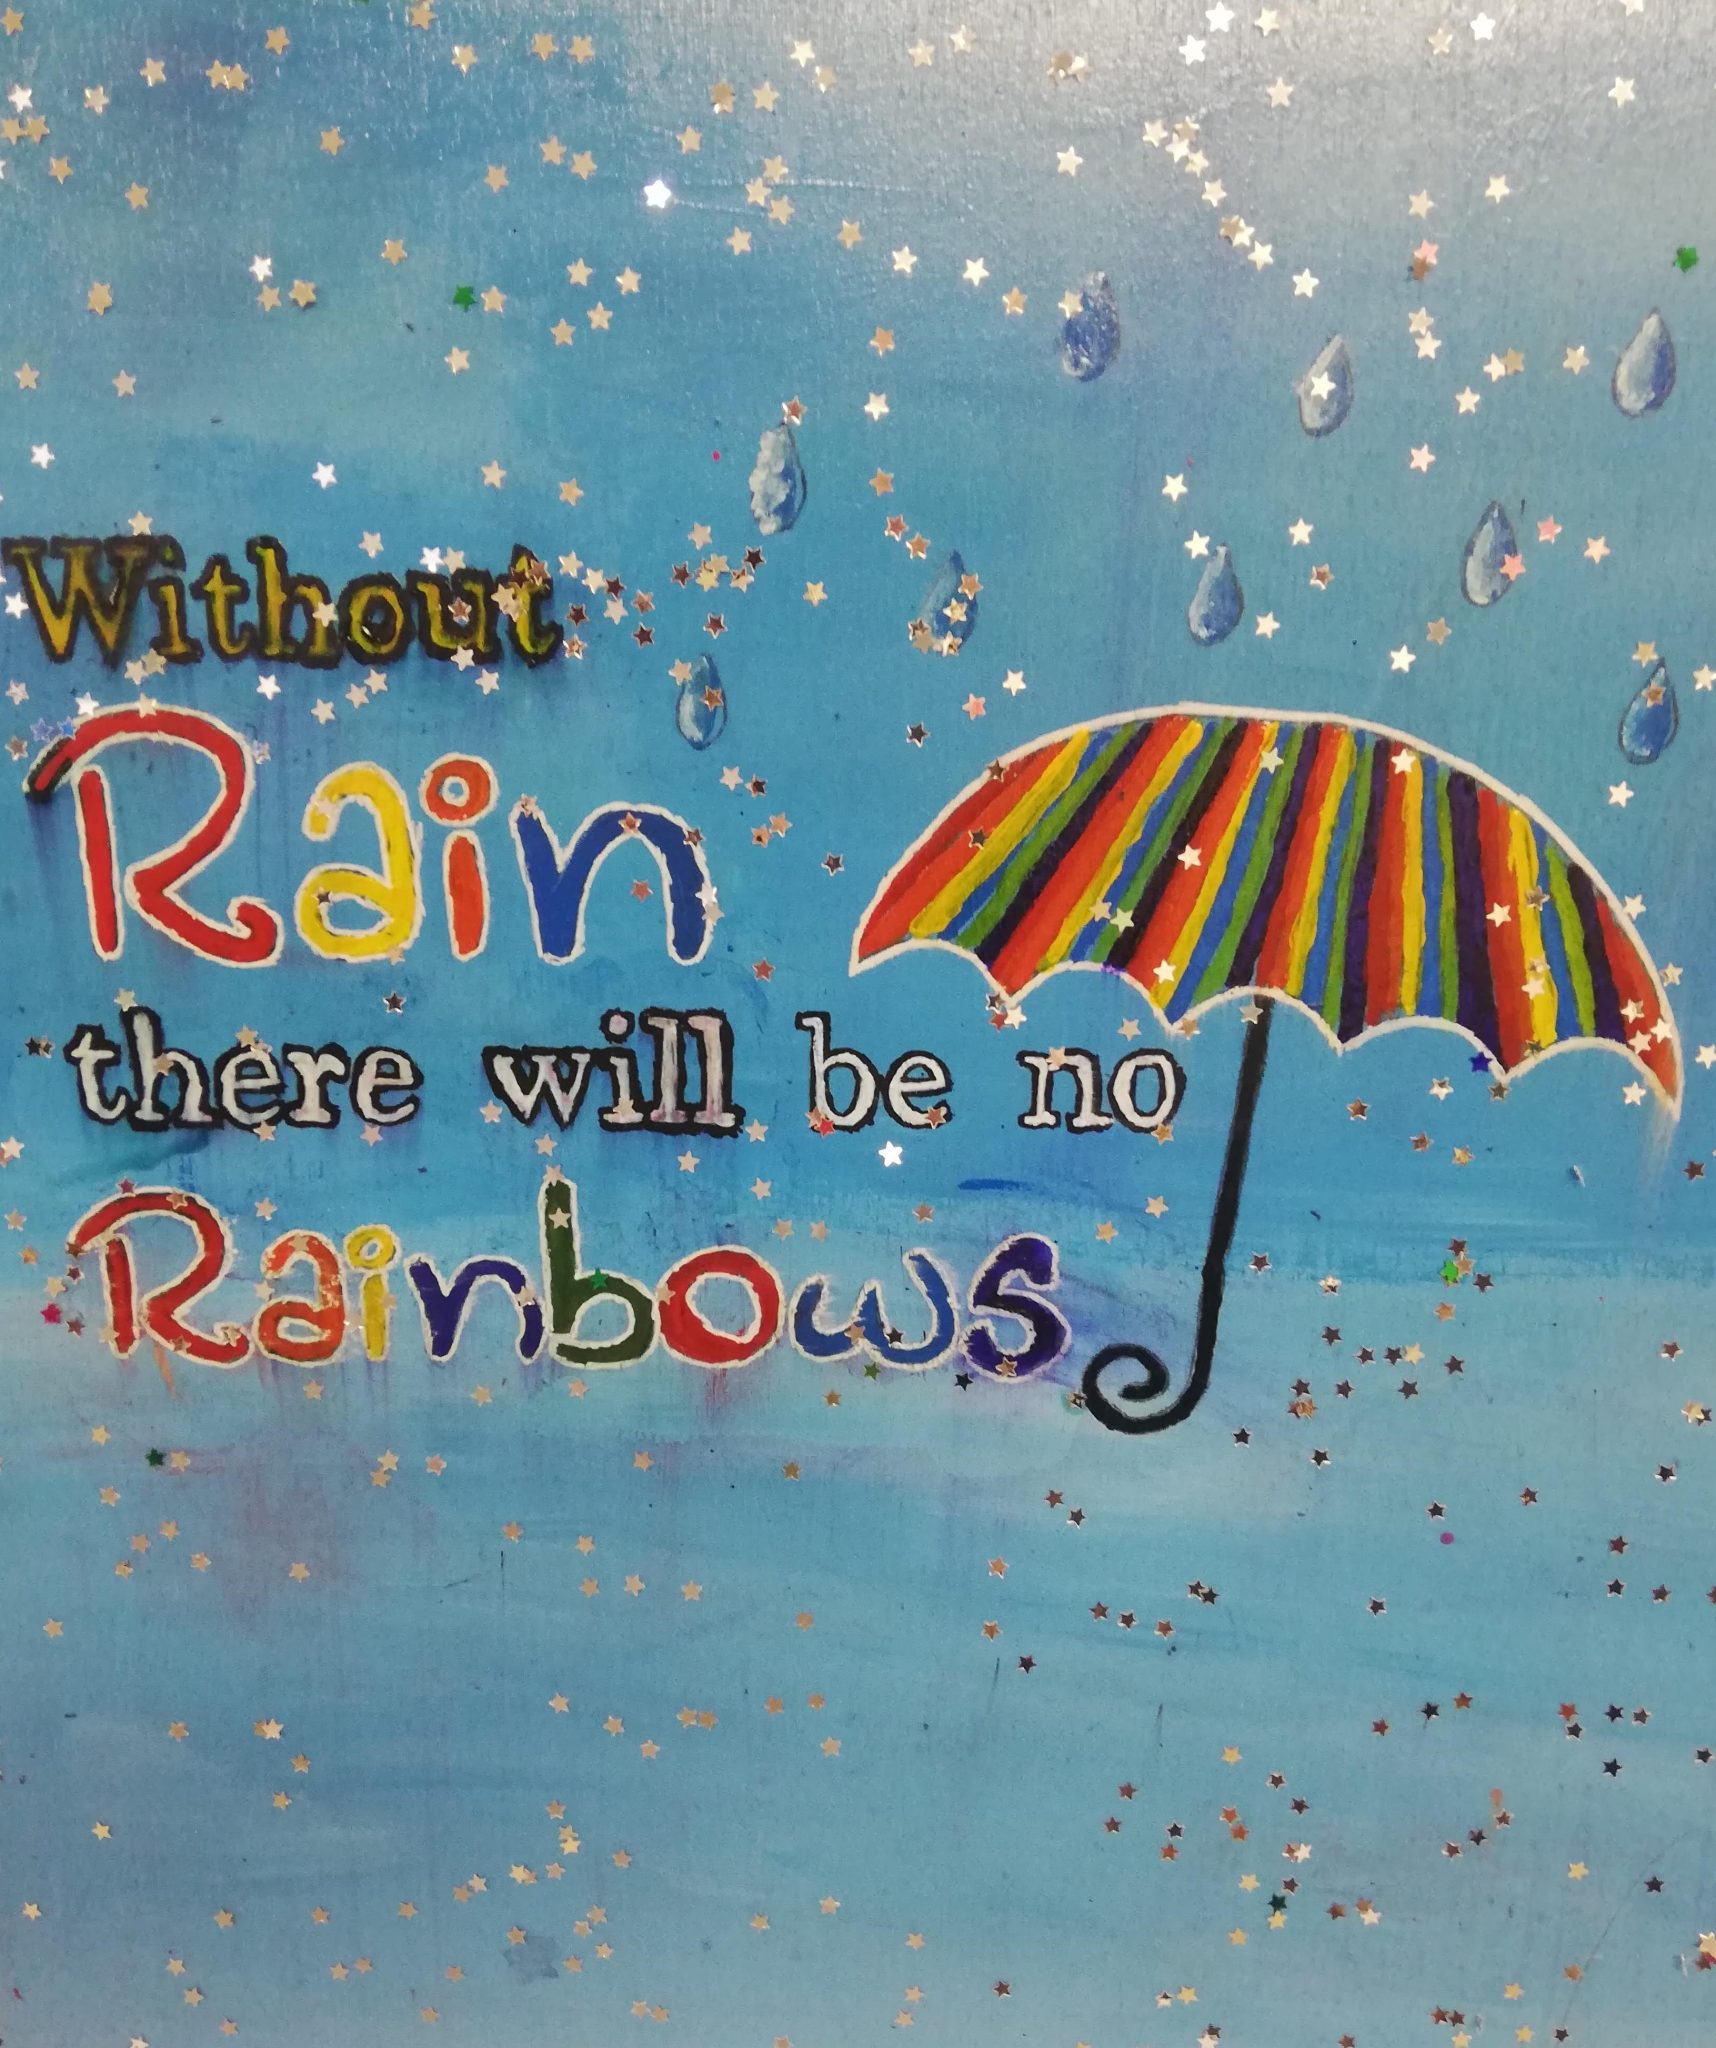 Without
Rain
there will be no
Rainbows